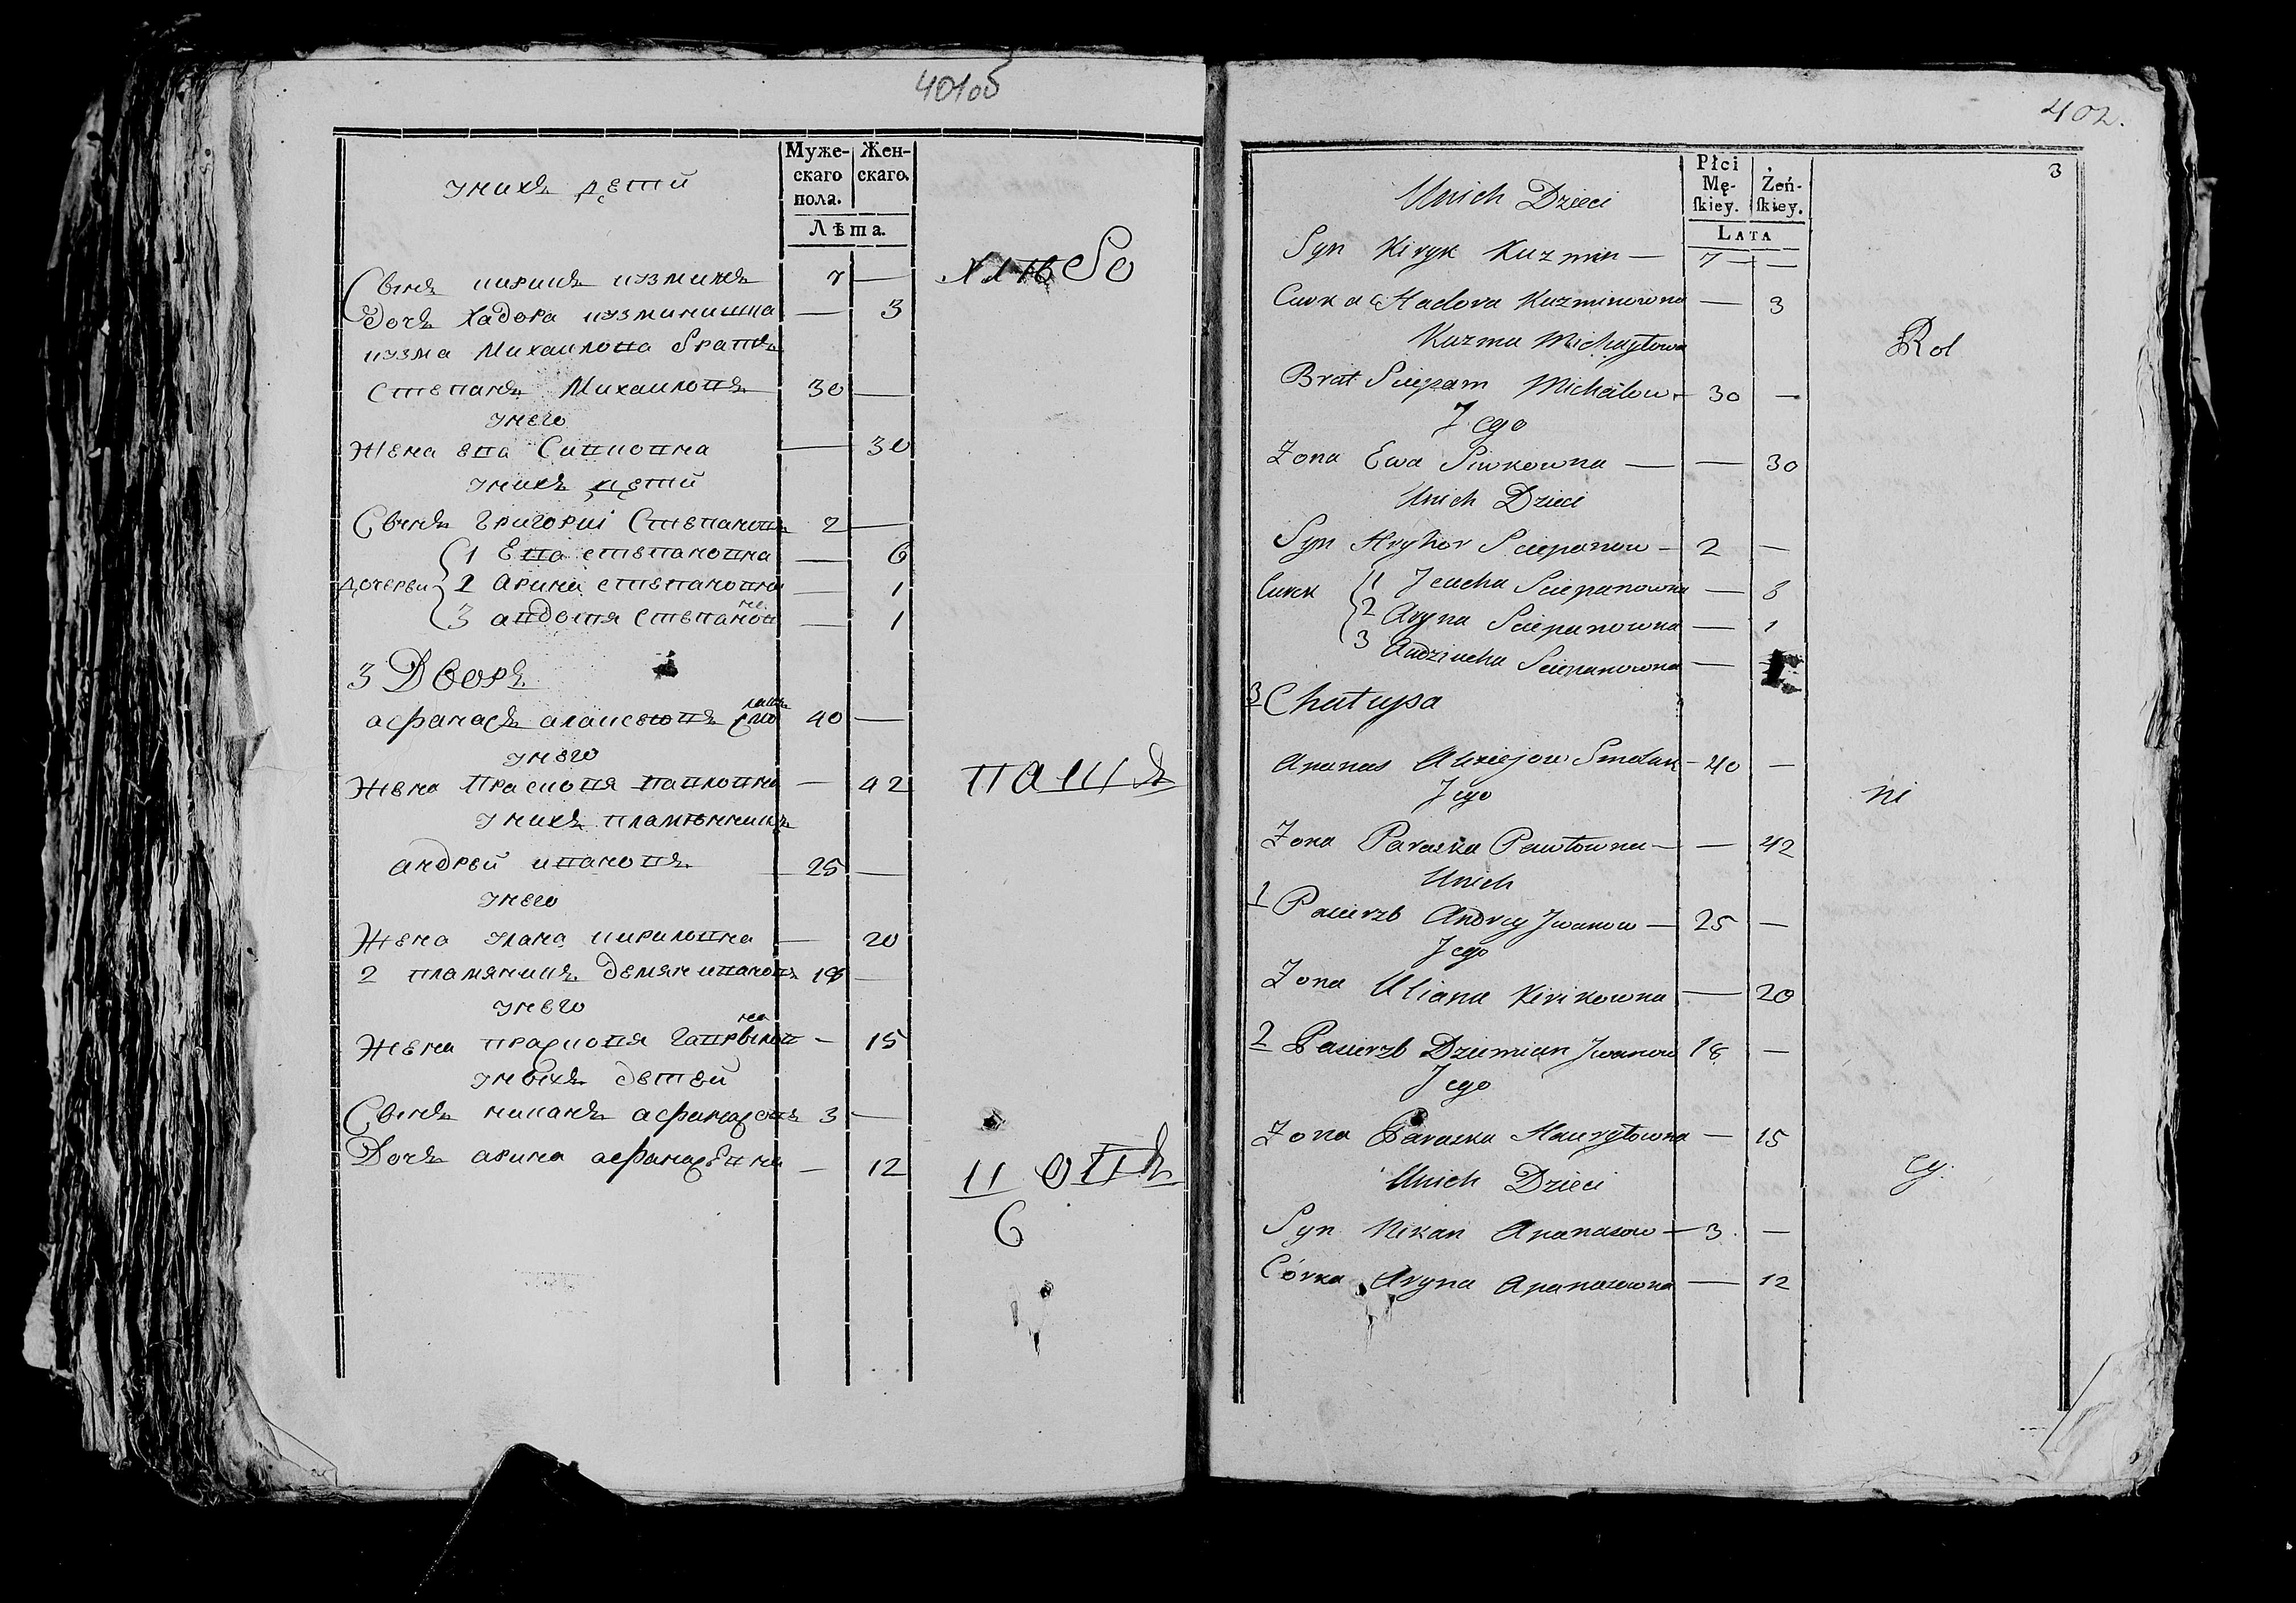 401об
Муже-
скаго
пола.
Жен-
скаго.
Лѣта.
у нихъ дети
Сынъ кирикъ кузминъ 7 —
Дочь Хадора кузминишна — 3
кузма Михаилова братъ
степанъ Михаиловъ 30 —
у него
Жена ева Сивковна — 30
у нихъ дети
Сынъ Григориі Степановъ 2 —
1 Ева степановна — 6
дочерей 2 Арина степановна — 1
3 авдотя Степановна — 1
3 Дворъ
афанасъ алаксеювъ 40 —
у него
Жена Прасковя павловна — 42
у нихъ пламѣнникъ
андрей ивановъ 25 —
у него
Жена улана кириловна — 20
2 пламяникъ демян ивановъ 18 —
у него
Жена прасковя гаврыловна — 15
у ныхъ детей
Сынъ никанъ афанасовъ 3 —
Дочь арина афанасевна — 12
хлѣбо
паш
ковъ
6
402.
3
Płci
Mę-
ſkiey.
Żeń-
ſkiey.
LATA
Unich Dzieci
Syn Kiryk Kuzmin — 7 —
Curka Hadora Kuzminowna — 3
Kuzma Michayłowa
Brat Sciepam Michálow — 30 —
Jego
Zona Ewa Siwkowna — — 30
Unich Dzieci
Syn Hryhor Sciepanow — 2 —
Curek 1 Jeucha Sciepanowna —
2 Aryna Sciepanowna — 1
3 Audziucha Sciepanowna —
3 Chatupa
Apanas Alexiejow Smolak — 40 —
Jego
Zona Paraska Pawłowna — — 42
Unich
1 Pacierzb Andrey Jwanow — 25 —
Jego
Zona Uliana Kirikowna — 20
2 Pacierzb Dziemian Jwanow 18 —
Jego
Zona Paraska Hauryłowna — 15
Unich Dzieci
Syn Nikan Apanasow — 3 —
Córka Aryna Apanasowna — 12
Rol
ni
cy.